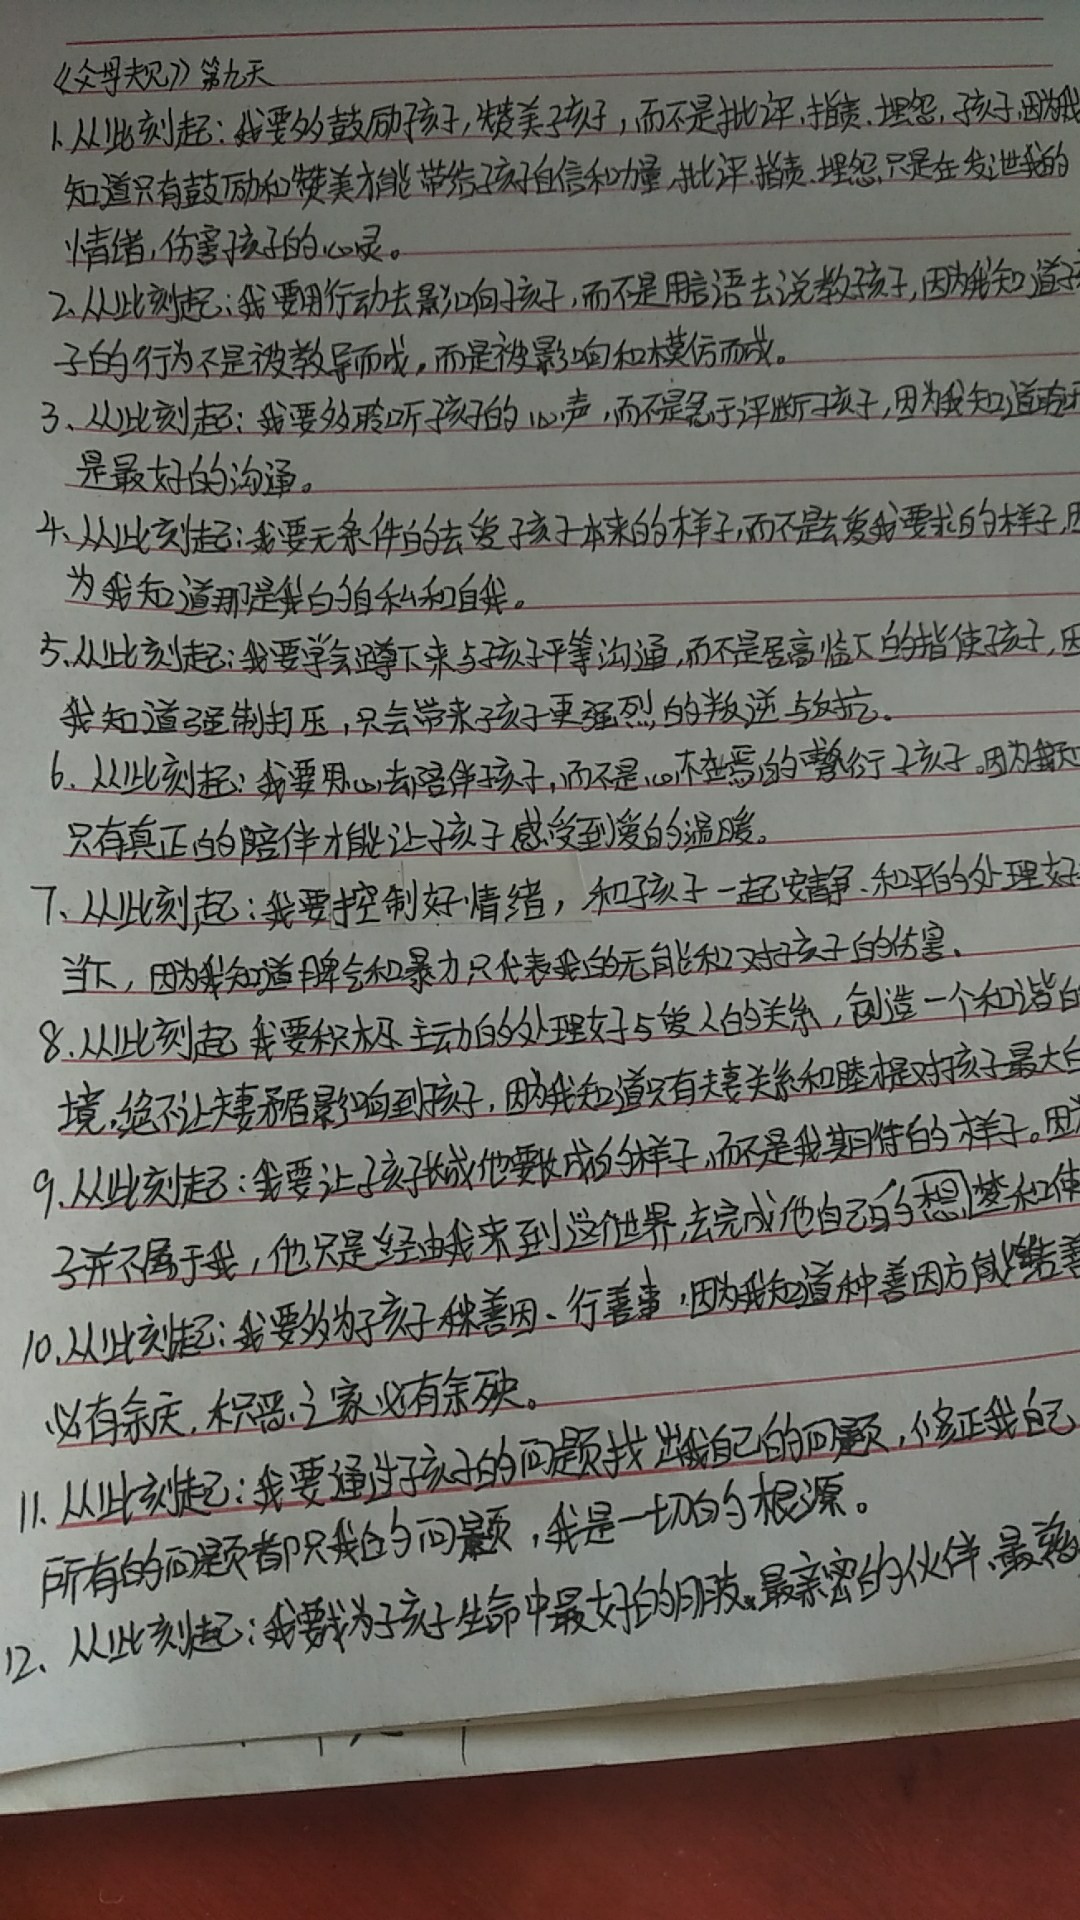 《父母规》第九天
1.从此刻起：我要多鼓励孩子，赞美孩子，而不是批评、指责、埋怨，孩子，因为我
知道只有鼓励和赞美才能带给孩子自信和力量，批评、指责、埋怨，只是在发泄我的
情绪，伤害孩子的心灵。
2.从此刻起：我要用行动去影响孩子，而不是用言语去说教孩子，因为我知道孩
子的行为不是被教导而成，而是被影响和模仿而成。
3、从此刻起：我要多聆听孩子的心声，而不是急于评断孩子，因为我知道聆听
是最好的沟通。
4、从此刻起：我要无条件的去爱孩子本来的样子，而不是去爱我要求的样子，因
为我知道那是我的自私和自我。
5、从此刻起：我要学会蹲下来与孩子平等沟通，而不是居高临下的指使孩子，因
我知道强制打压，只会带来孩子更强烈的叛逆与反抗。
6、从此刻起：我要用心去陪伴孩子，而不是心不在焉的敷衍孩子。因为我知
只有真正的陪伴才能让孩子感受到爱的温暖。
7、从此刻起：我要控制好情绪，和孩子一起安静、和平的处理好
当下，因为我知道脾气和暴力只代表我的无能和对孩子的伤害。
8.从此刻起 我要积极主动的处理好与爱人的关系，创造一个和谐的
境，绝不让夫妻矛盾影响到孩子，因为我知道只有夫妻关系和睦才是对孩子最大的
9、从此刻起：我要让孩子长成他要长成的样子，而不是我期待的样子。因为
子并不属于我，他只是经由我来到这个世界，去完成他自己的想梦和使
10、从此刻起：我要多为孩子种善因、行善事，因为我知道种善因方能结善
必有余庆，积恶之家必有余殃。
11、从此刻起：我要通过孩子的问题找出我自己的问题，修正我自己
所有的问题都只我的问题，我是一切的根源。
12、从此刻起：我要成为孩子生命中最好的朋友、最亲密的伙伴、最